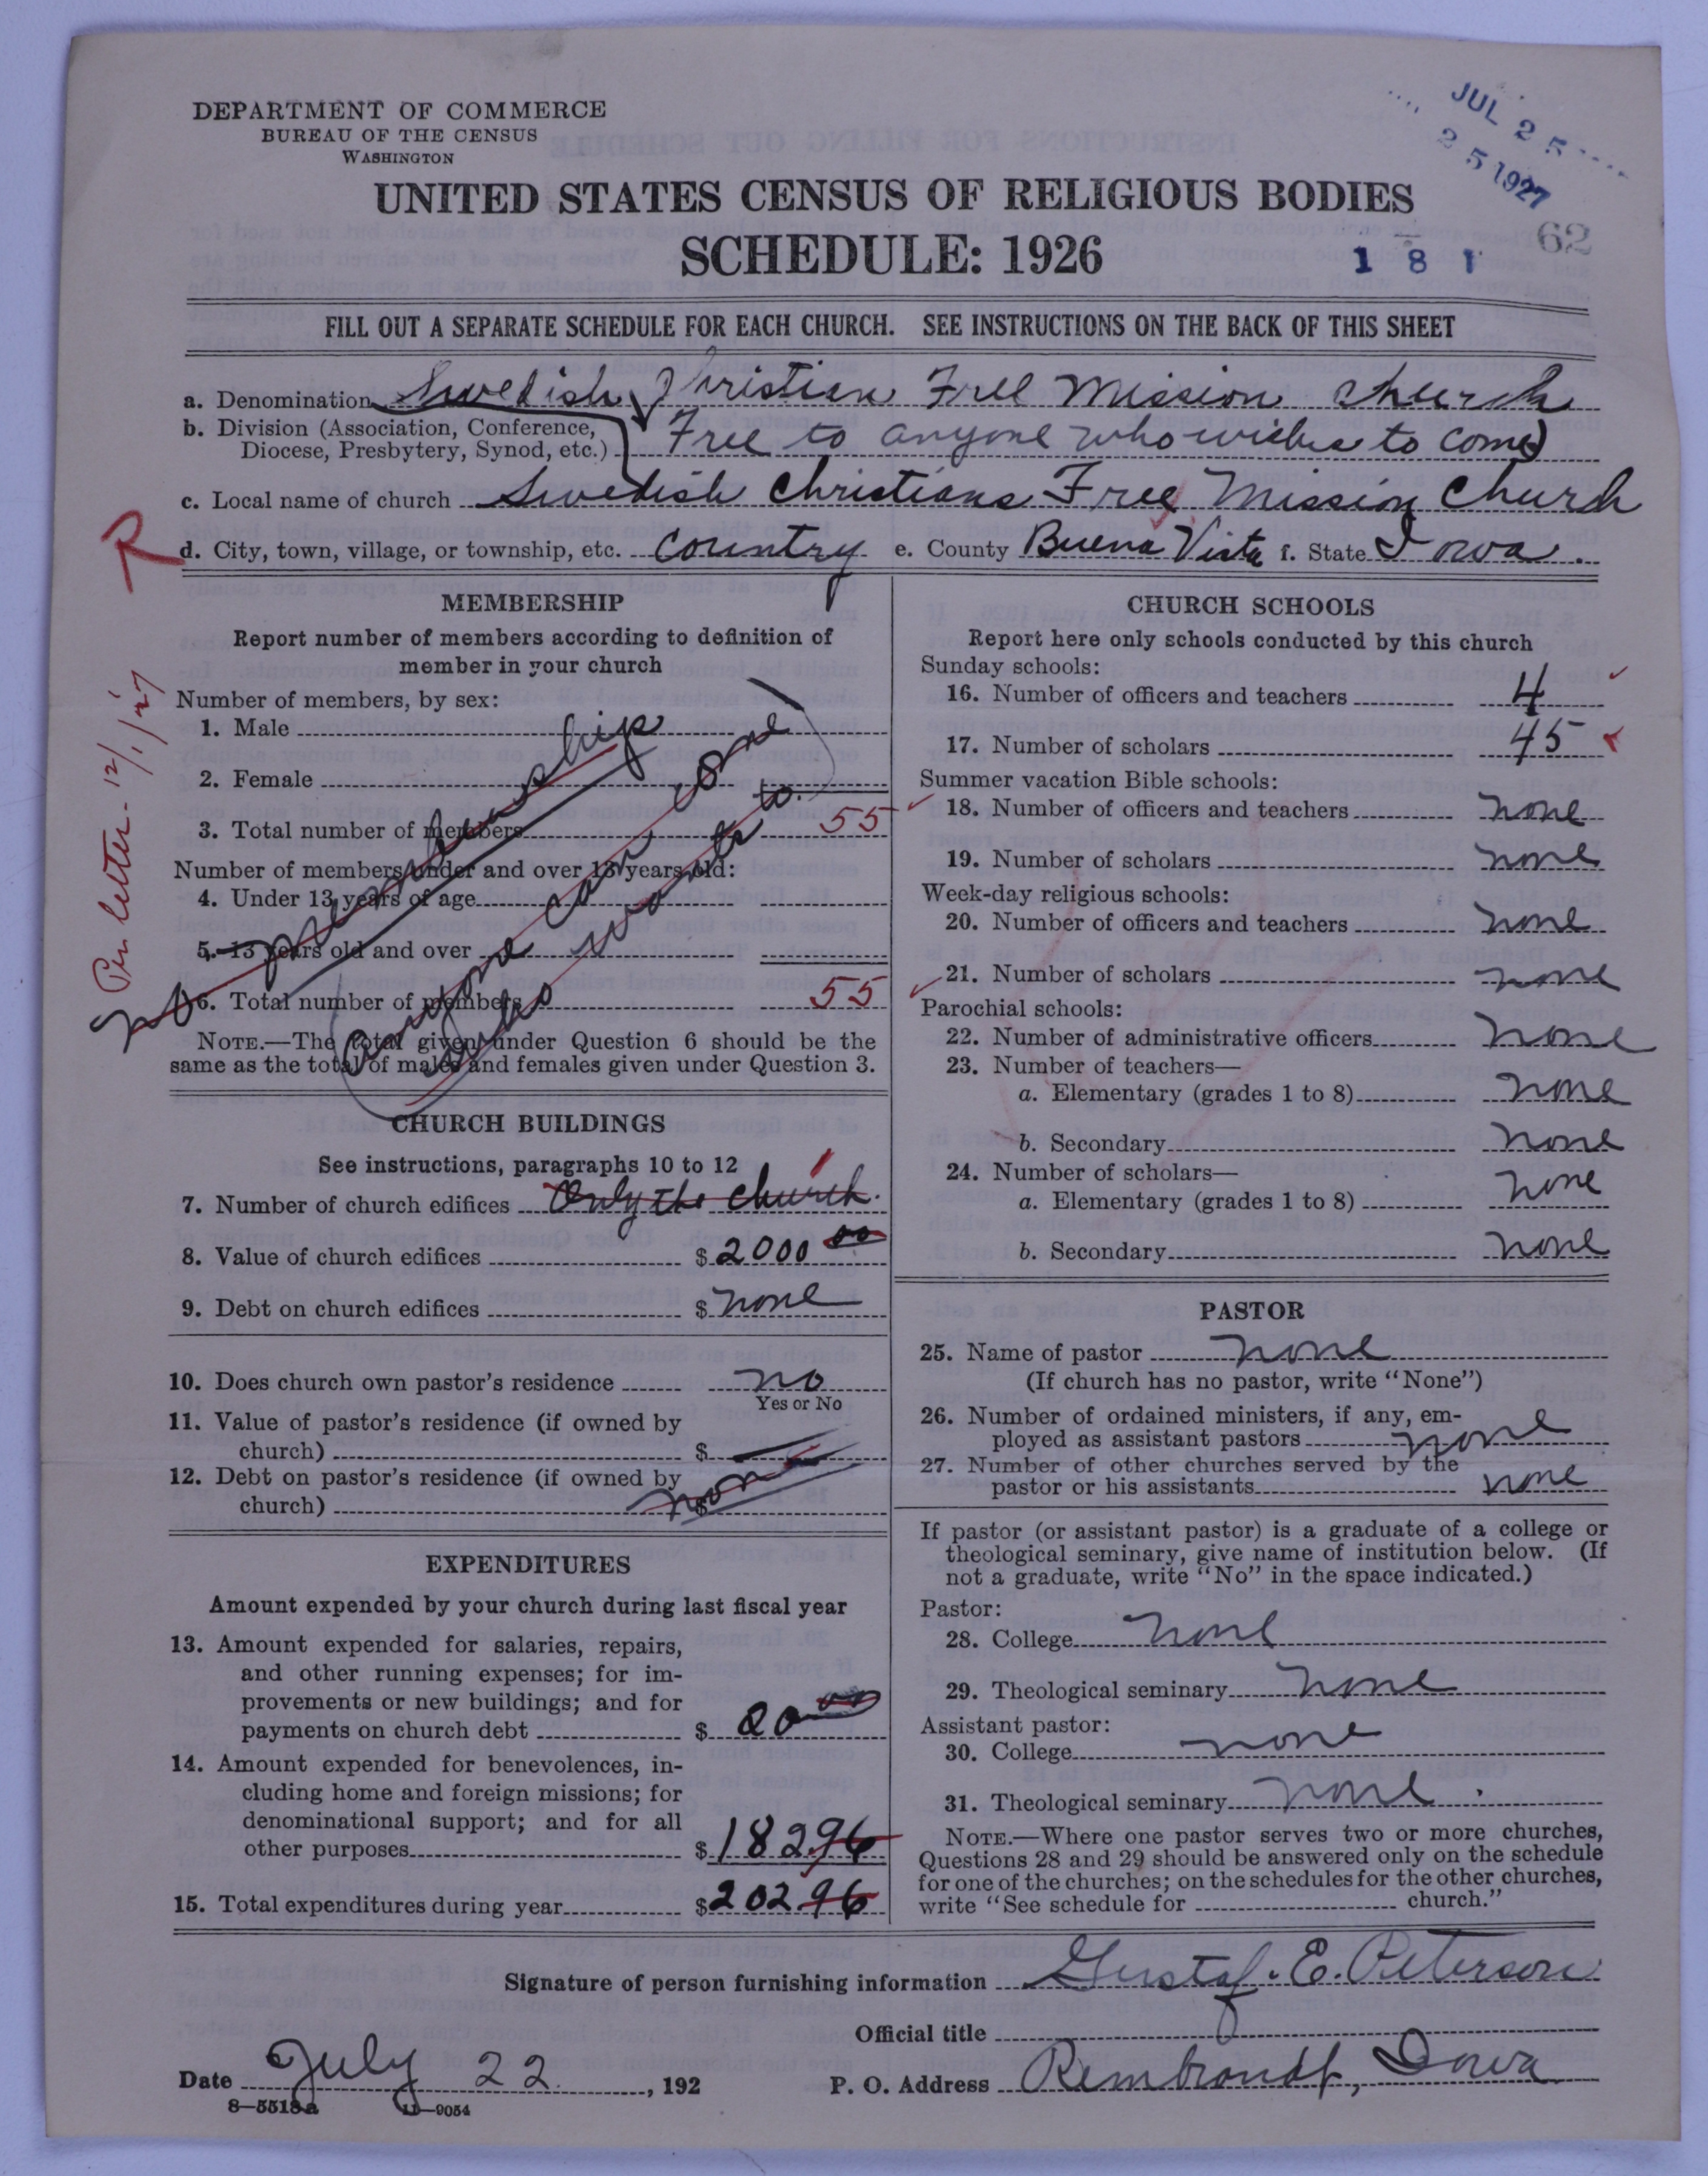 DEPARTMENT OF COMMERCE
BUREAU OF THE CENSUS
WASHINGTON
JUL 25
25 1927
62
UNITED STATES CENSUS OF RELIGIOUS BODIES
SCHEDULE: 1926
1 8 1
FILL OUT A SEPARATE SCHEDULE FOR EACH CHURCH. SEE INSTRUCTIONS ON THE BACK OF THIS SHEET
a. Denomination Swedish Christian Free Mission Church
b. Division (Association, Conference, Diocese, Presbytery, Synod, etc.) Free to anyone who wishes to come)
c. Local name of church Swedish Christians Free Mission Church
d. City, town, village, or township, etc. Country e. County Buena Vista f. State Iowa.
R
Per letter - 12/1/27
MEMBERSHIP
Report number of members according to definition of
member in your church
Number of members, by sex:
1. Male
2. Female
3. Total number of members 55
Number of members under and over 13 years old:
4. Under 13 years of age
5. 13 years old and over
6. Total number of members 55
No membership
(anyone can come
who wants to.)
NOTE.—The total given under Question 6 should be the
same as the total of males and females given under Question 3.
CHURCH BUILDINGS
See instructions, paragraphs 10 to 12
7. Number of church edifices Only the church. 1
8. Value of church edifices $ 2000 00
9. Debt on church edifices $ none
10. Does church own pastor's residence no
Yes or No
11. Value of pastor's residence (if owned by
church) $
12. Debt on pastor's residence (if owned by
church) $ none
EXPENDITURES
Amount expended by your church during last fiscal year
13. Amount expended for salaries, repairs,
and other running expenses; for im-
provements or new buildings; and for
payments on church debt $ 20 00
14. Amount expended for benevolences, in-
cluding home and foreign missions; for
denominational support; and for all
other purposes $ 182.96
15. Total expenditures during year $ 202.96
CHURCH SCHOOLS
Report here only schools conducted by this church
Sunday schools:
16. Number of officers and teachers 4
17. Number of scholars 45
Summer vacation Bible schools:
18. Number of officers and teachers none
19. Number of scholars none
Week-day religious schools:
20. Number of officers and teachers none
21. Number of scholars none
Parochial schools:
22. Number of administrative officers none
23. Number of teachers—
a. Elementary (grades 1 to 8) none
b. Secondary none
24. Number of scholars—
a. Elementary (grades 1 to 8) none
b. Secondary none
PASTOR
25. Name of pastor none
(If church has no pastor, write "None")
26. Number of ordained ministers, if any, em-
ployed as assistant pastors none
27. Number of other churches served by the
pastor or his assistants none
If pastor (or assistant pastor) is a graduate of a college or
theological seminary, give name of institution below. (If
not a graduate, write "No" in the space indicated.)
Pastor:
28. College none
29. Theological seminary none
Assistant pastor:
30. College none
31. Theological seminary none.
NOTE.—Where one pastor serves two or more churches,
Questions 28 and 29 should be answered only on the schedule
for one of the churches; on the schedules for the other churches,
write "See schedule for church."
Signature of person furnishing information Gustaf. E. Peterson
Official title
Date July 22, 192
P. O. Address Rembrandt, Iowa
8—5513a 11—9054